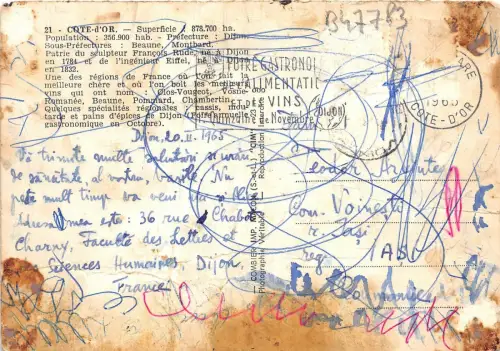 21 - COTE-d'OR. — Superficie : 878.700 ha.
Population : 356.900 hab. - Préfecture : Dijon
Sous-Préfectures : Beaune, Montbard.
Patrie du sculpteur François Rude, né à Dijon
en 1784 et de l'ingénieur Eiffel, né à Dijon
en 1832.
Une des régions de France où l'on fait la
meilleure chère et où l'on boit les meilleurs
vins qui ont nom : Clos-Vougeot, Vosne-
Romanée, Beaune, Pommard, Chambertin.
Quelques spécialités régionales : cassis, mou-
tarde et pains d'épices de Dijon (Foire annuelle
gastronomique en Octobre).
B47783
FOIRE GASTRONO
ALIMENTATI
ET DES VINS
DIJON
Quinzaine de Novembre
GARE
1965
COTE-D'OR
Dijon, 20.II.1965
Vă trimite multe salutări și urări
de sănătate, al vostru, Vasile. Nu
peste mult timp va veni
mea este: 36 rue Chabot
Charny, Faculté des Lettres et
Sciences Humaines, Dijon,
France.
COMBIER IMP. MACON (S.-et-L.) "CIM"
Photographie Véritable - Reproduction interdite
Com. Voinești
r. Iași
reg
IAȘI